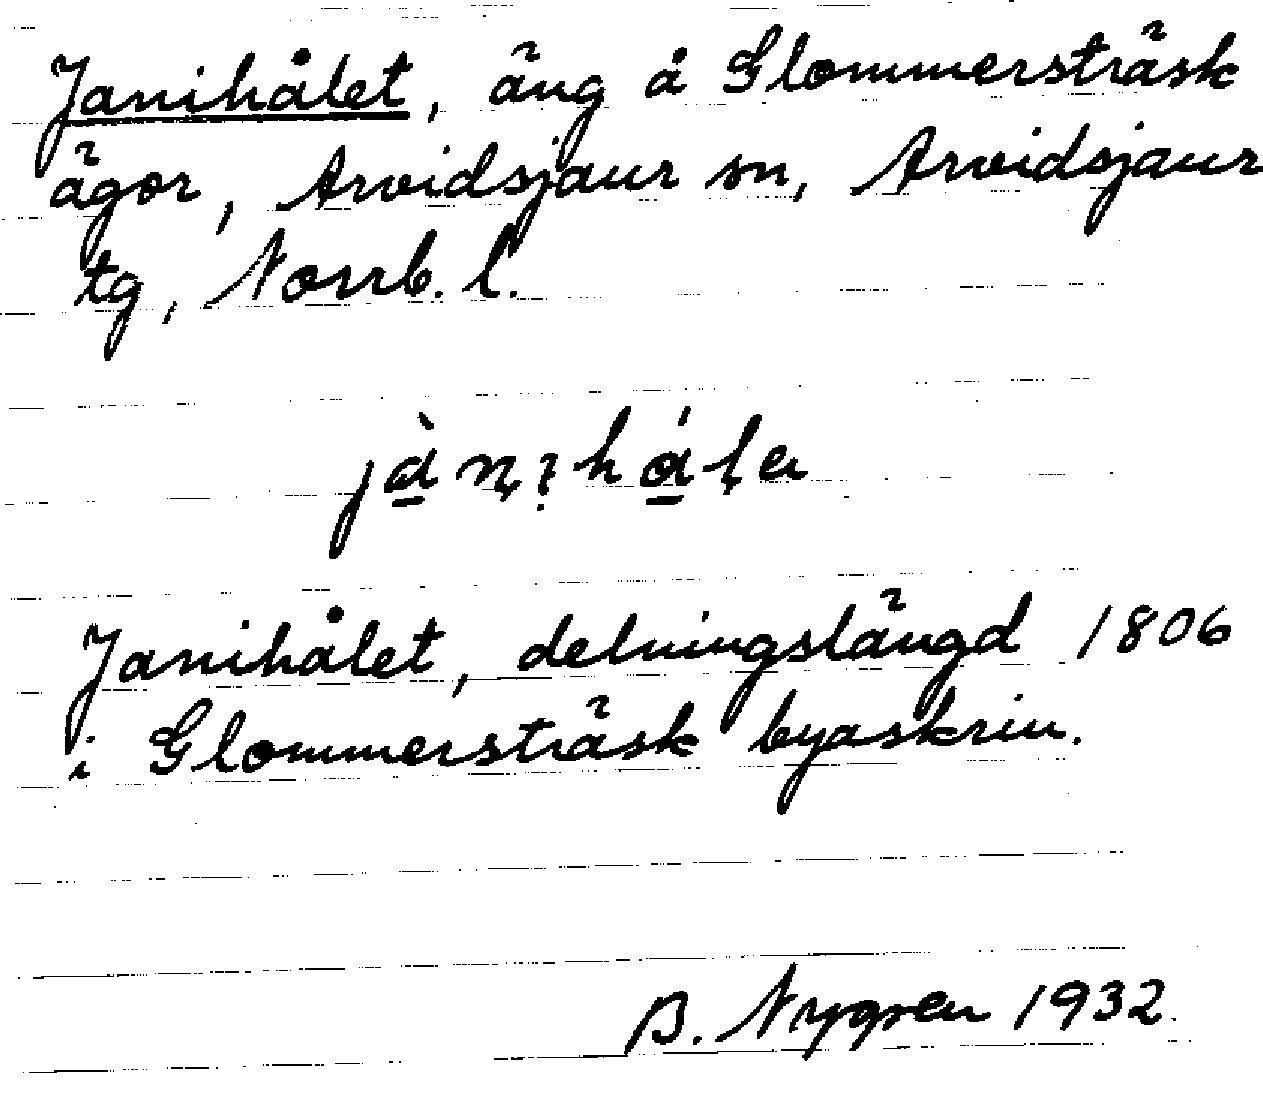 Janihålet, äng å Glommersträsk
ägor, Arvidsjaur sn, Arvidsjaur
tg, Norrb. l.
Janihålet, delningslängd 1806
i Glommersträsk byaskrin.
B. Nygren 1932